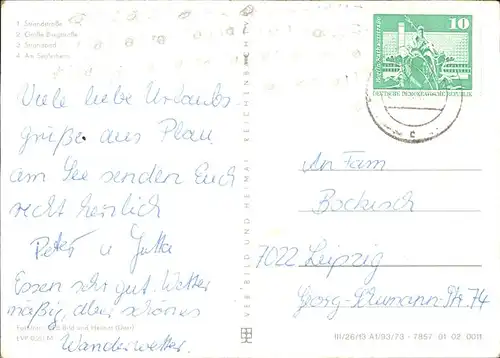 1 Strandstraße
2 Große Burgstraße
3 Strandbad
4 Am Seeufer
Viele liebe Urlaubs-
grüße aus Plau
am See senden Euch
recht herzlich
Peter u. Jutta
Essen sehr gut. Wetter
mäßig, aber schönes
Wanderwetter.
Bild und Heimat
EVP 0,20 M
VEB BILD UND HEIMAT REICHENBACH
10
DEUTSCHE DEMOKRATISCHE REPUBLIK
c
An Fam
Bockisch
7022 Leipzig
Georg-Schumann-Str. 74
III/26/13 A1/93/73 - 7857 01 02 0011